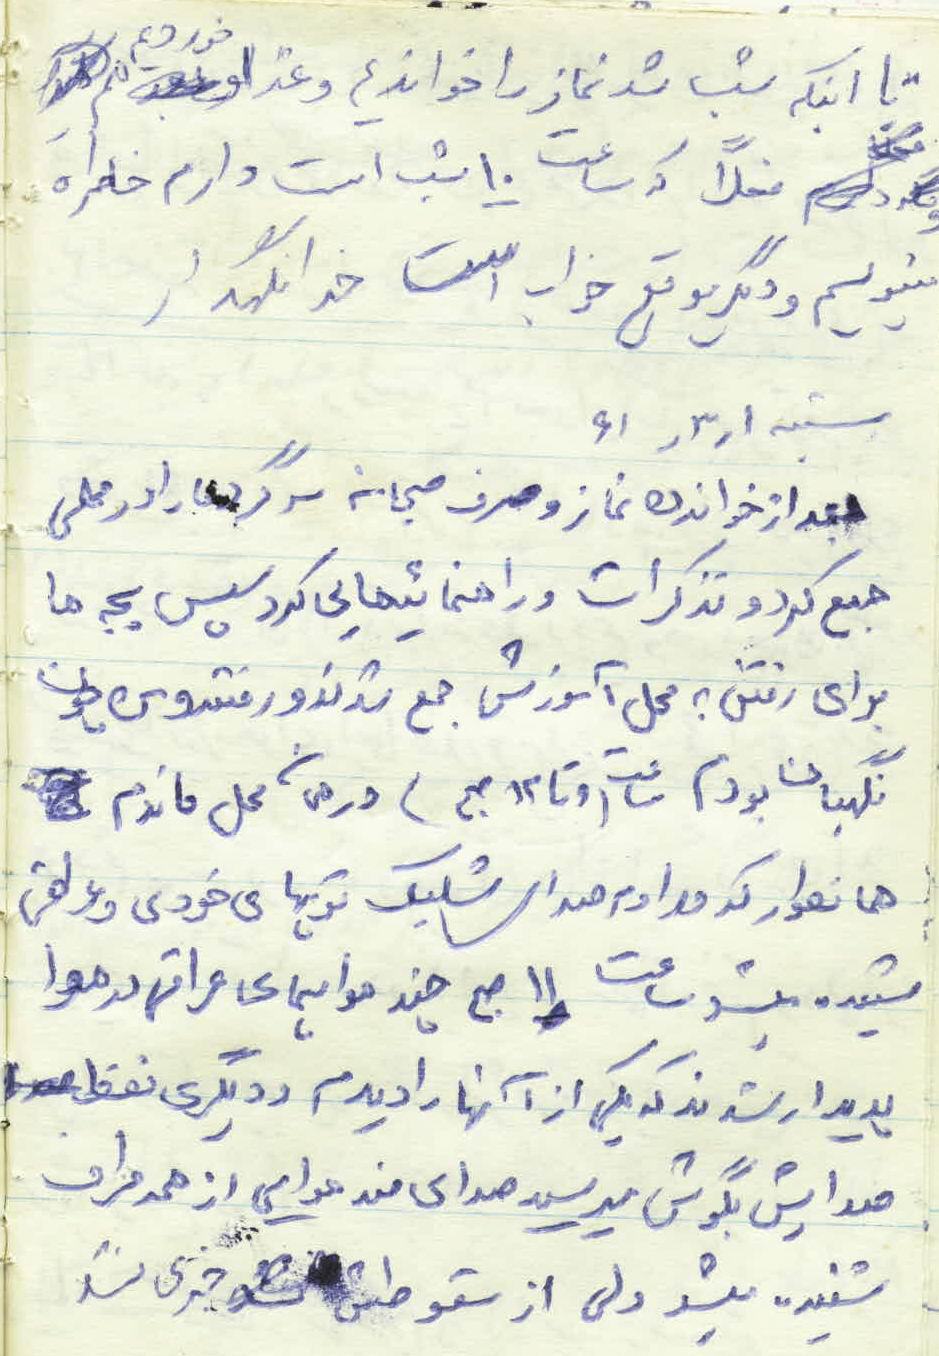 تا اینکه شب شد نماز را خواندیم و غذا خوردیم
فعلاً که ساعت ۱۰ شب است دارم خاطراه
مینویسم و دیگر موقع خواب است خدانگهدار
شنبه ۱ ر ۳ ر ۶۱
بعد از خواندن نماز و صرف صبحانه سرگرد ما را در محلی
جمع کرد و تذکرات و راهنمائیهایی کرد سپس بچه ها
برای رفتن به محل آموزش جمع شدند و رفتند و من چون
نگهبان بودم ساعت تا ۱۲ صبح ) در همان محل ماندم
همانطور که مداوم صدای شلیک توپهای خودی و عراقی
شنیده میشد ساعت ۱۱ صبح چند هواپیمای عراقی در هوا
پدیدار شدند که یکی از آنها را دیدم و دیگری فقط
صدایش بگوش میرسید صدای ضد هوایی از همه طرف
شنیده میشد ولی از سقوطش خبری نشد